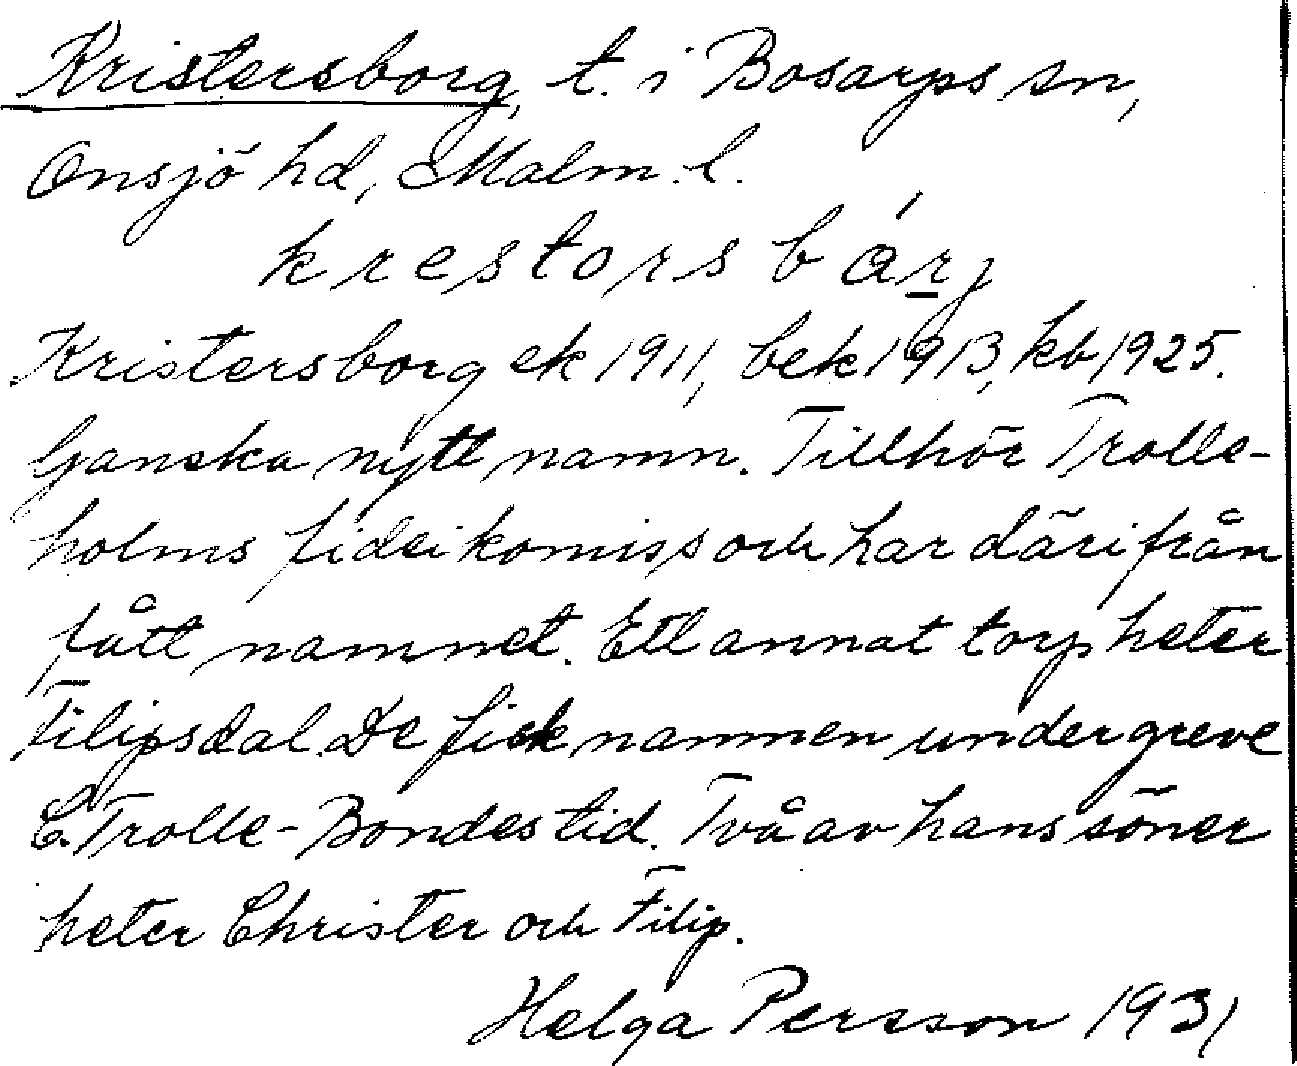 Kristersborg, t. i Bosarps sn,
Onsjö hd, Malm. l.
krestorsbárj
Kristersborg ek 1911, bek 1913, kb 1925.
Ganska nytt namn. Tillhör Trolle-
holms fideikomiss och har därifrån
fått namnet. Ett annat torp heter
Filipsdal. De fick namnen under greve
C. Trolle-Bondes tid. Två av hans söner
heter Christer och Filip.
Helga Persson 1931